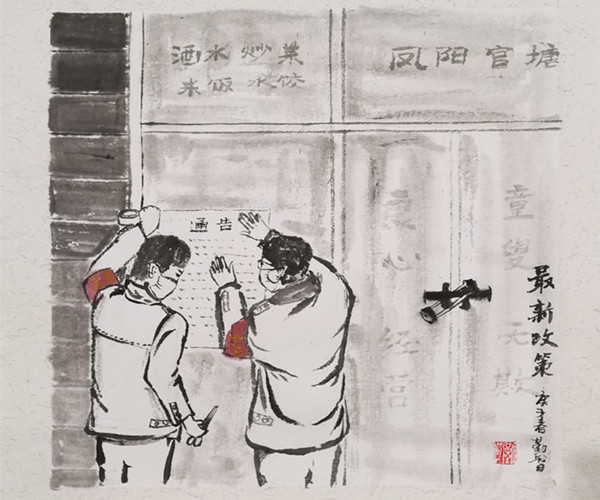 酒水炒菜
米饭水饺
凤阳官塘
通告
良心经营
童叟无欺
最新政策
庚子春